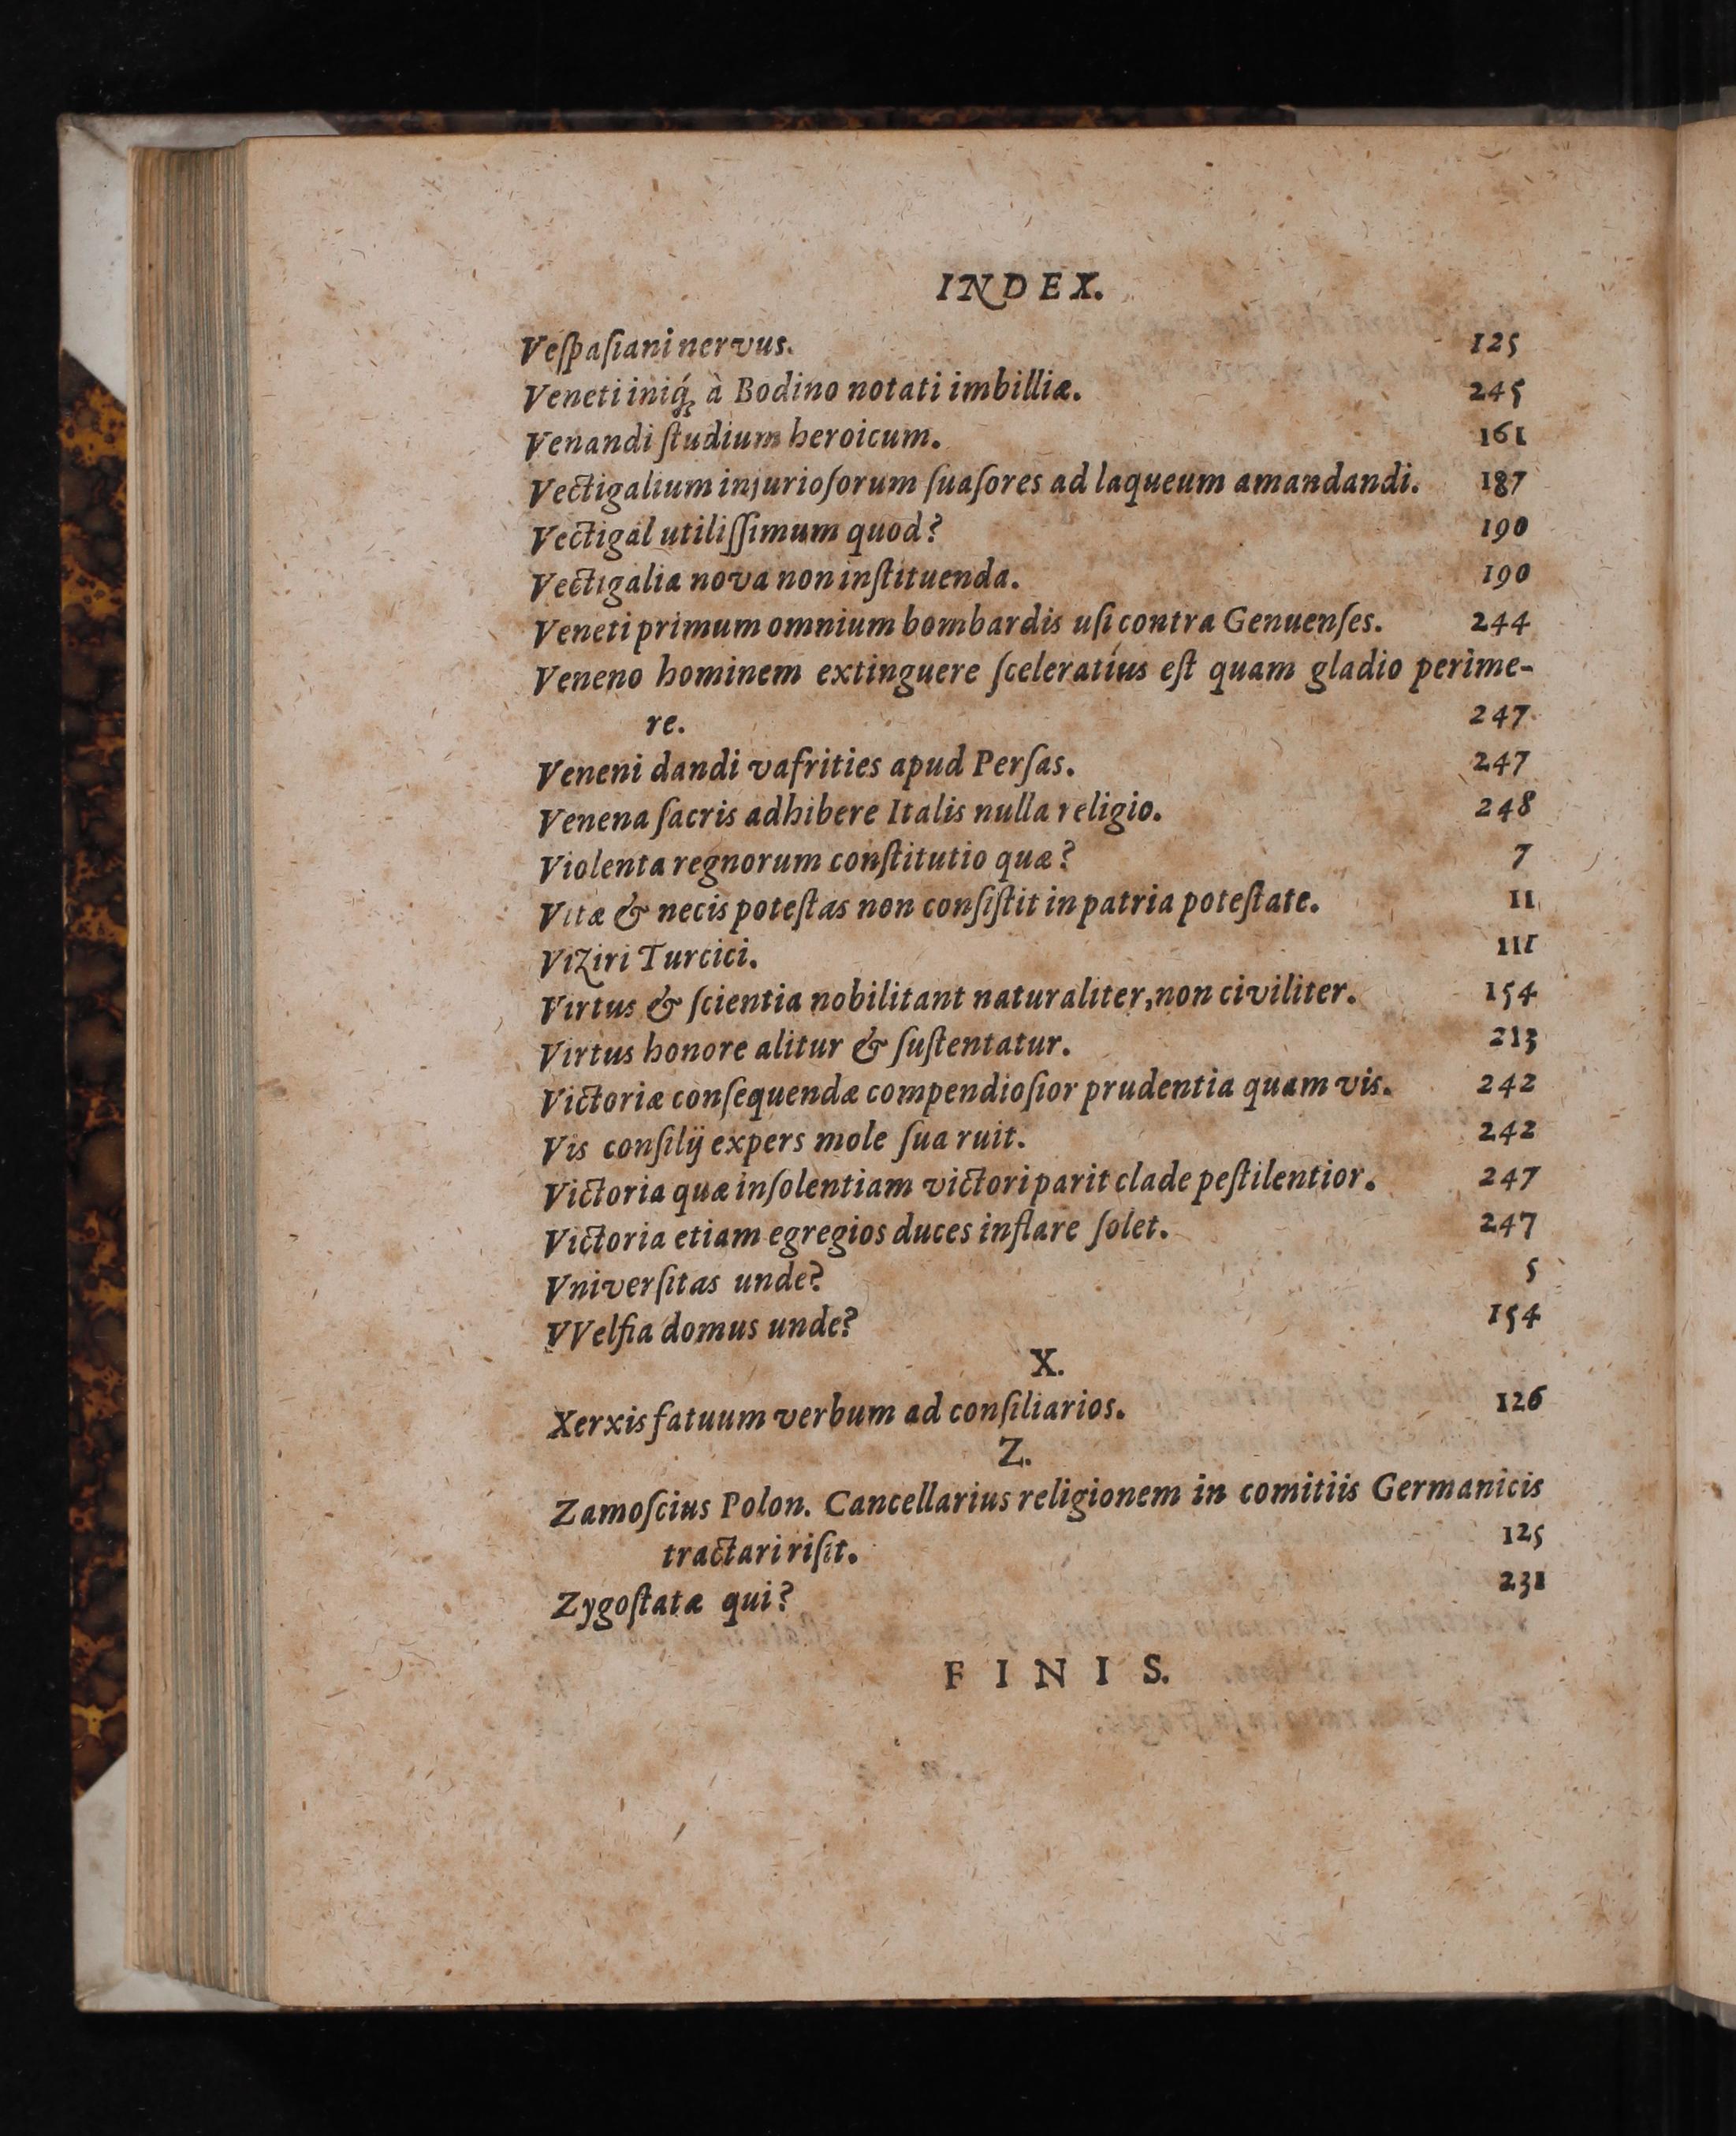 INDEX.
Veſpaſiani nervus. 125
Veneti iniq́ꝫ à Bodino notati imbilliæ. 245
Venandi ſtudium heroicum. 161
Vectigalium injurioſorum ſuaſores ad laqueum amandandi. 187
Vectigal utiliſſimum quod? 190
Vectigalia nova non inſtituenda. 190
Veneti primum omnium bombardis uſi contra Genuenſes. 244
Veneno hominem extinguere ſceleratíus eſt quam gladio perime-
re. 247
Veneni dandi vafrities apud Perſas. 247
Venena ſacris adhibere Italis nulla religio. 248
Violenta regnorum conſtitutio quæ? 7
Vitæ & necis poteſtas non conſiſtit in patria poteſtate. 11
Viziri Turcici. 111
Virtus & ſcientia nobilitant naturaliter, non civiliter. 154
Virtus honore alitur & ſuſtentatur. 213
Victoriæ conſequendæ compendioſior prudentia quam vis. 242
Vis conſilij expers mole ſua ruit. 242
Victoria quæ inſolentiam victori parit clade peſtilentior. 247
Victoria etiam egregios duces inflare ſolet. 247
Vniverſitas unde? 5
VVelfia domus unde? 154
X.
Xerxis fatuum verbum ad conſiliarios. 126
Z.
Zamoſcius Polon. Cancellarius religionem in comitiis Germanicis
tractari riſit. 125
Zygoſtatæ qui? 231
FINIS.